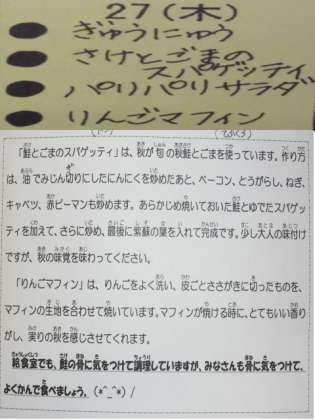 27(木)
ぎゅうにゅう
さけとごまの
スパゲッティ
パリパリサラダ
りんごマフィン
「鮭とごまのスパゲッティ」は、秋が旬の秋鮭とごまを使っています。作り方
は、油でみじん切りにしたにんにくを炒めたあと、ベーコン、とうがらし、ねぎ、
キャベツ、赤ピーマンも炒めます。あらかじめ焼いておいた鮭とゆでたスパゲッ
ティを加えて、さらに炒め、最後に紫蘇の葉を入れて完成です。少し大人の味付け
ですが、秋の味覚を味わってください。
「りんごマフィン」は、りんごをよく洗い、皮ごとささがきに切ったものを、
マフィンの生地を合わせて焼いています。マフィンが焼ける時に、とてもいい香り
がし、実りの秋を感じさせてくれます。
給食室でも、鮭の骨に気をつけて調理していますが、みなさんも骨に気をつけて、
よくかんで食べましょう。(*^_^*)/